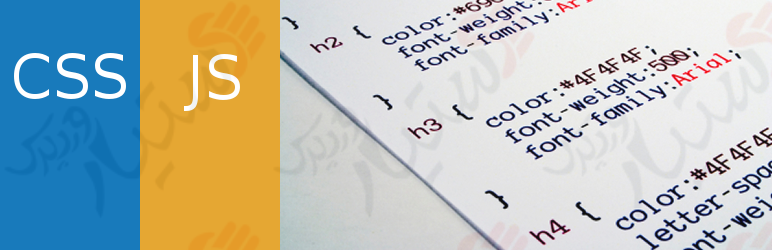 CSS
JS
}
h2 { color:#
font-weight:
font-family:Ari
}
h3 { color:#4F4F4F;
font-weight:500;
font-family:Arial;
}
h4 { color:#4F4F4F
letter-spa